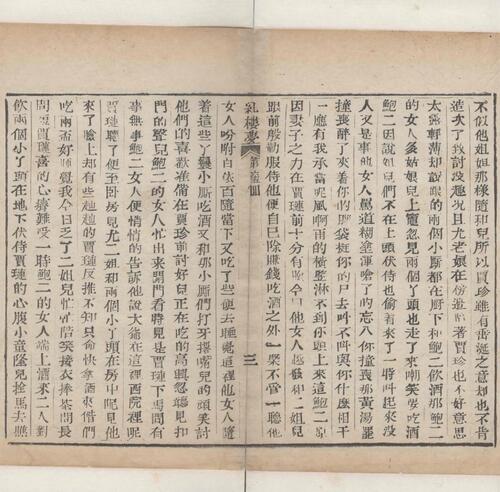 不似他姐姐那樣隨和兒所以賈珍雖有垂涎之意却也不肯
造次了致討沒趣况且尤老娘在傍邊陪著賈珍也不好意思
太露輕薄却說跟的兩個小廝都在厨下和鮑二飲酒那鮑二
的女人多姑娘兒上竈忽見兩個丫頭也走了來嘲笑要吃酒
鮑二因說姐兒們不在上頭伏侍也偷着來了一時叫起來沒
人又是事他女人罵道糊塗渾嗆了的忘八你撞喪那黃湯罷
撞喪醉了夾着你的腦袋挺你的尸去叫不叫與你什麽相干
一應有我承當呢風啊雨的橫竪淋不到你頭上來這鮑二原
因妻子之力在賈璉前十分有
跟前殷勤服侍他便自己除賺錢吃酒之外一槩不管一聽他
女人吩咐百依百隨當下又吃了些便去睡覺這裡他女人隨
着這些丫鬟小廝吃酒又和那小廝們打牙撂嘴兒的頑笑討
他們的喜歡准備在賈珍前討好兒正在吃的高興忽聽見扣
門的聲兒鮑二的女人忙出來開門看時見是賈璉下馬問有
事無事鮑二女人便悄悄的告訴他說大爺在這裡西院裡呢
賈璉聽了便至卧房見尤二姐和兩個小丫頭在房中呢見他
來了臉上却有些赸赸的賈璉反推不知只命快拿酒來偺們
吃兩盃好睡覺我今日乏了二姐兒忙忙陪笑接衣捧茶問長
問短賈璉喜的心癢難受一時鮑二的女人端上酒來二人對
飲兩個小丫頭在地下伏侍賈璉的心腹小童隆兒拴馬去瞧
紅樓夢
三